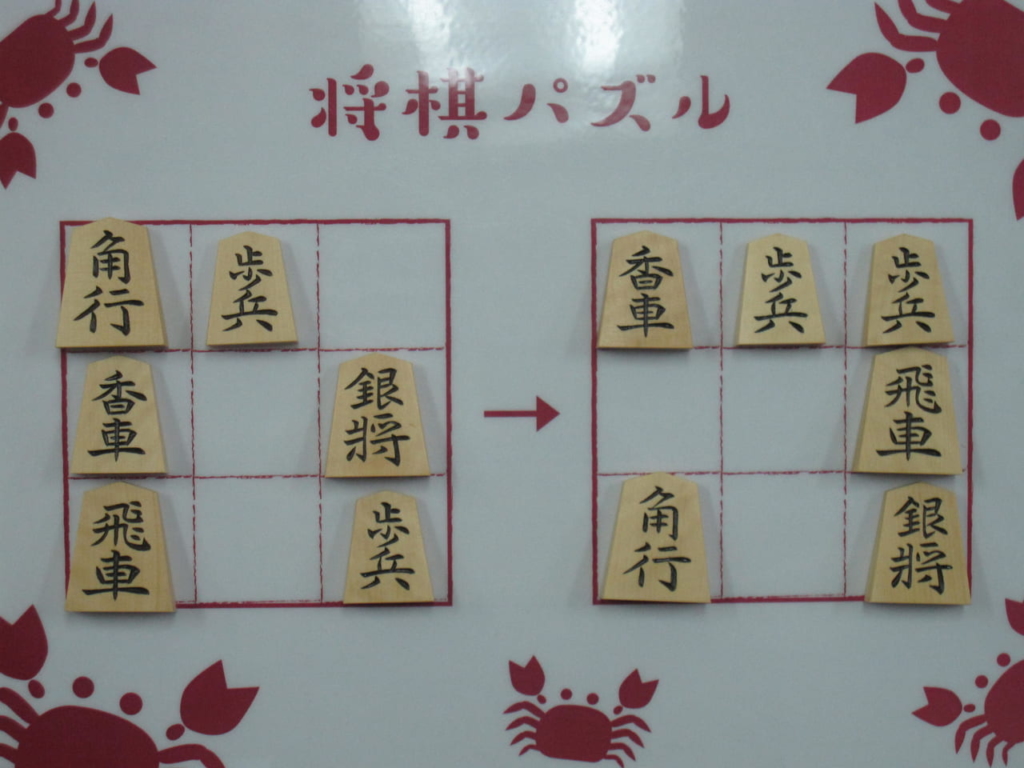 将棋パズル
角行
歩兵
香車
銀将
飛車
歩兵
香車
歩兵
歩兵
飛車
角行
銀将